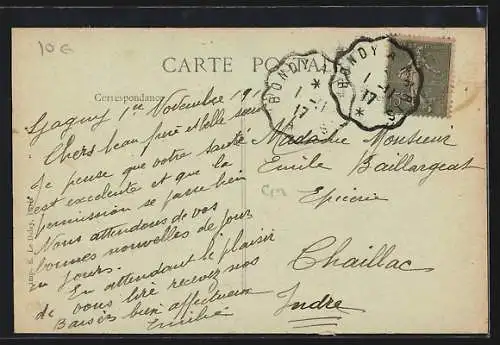 10€
CARTE POSTALE
Correspondance
BONDY A
1 -11
17
BONDY A
1 -11
17
Gagny 1er Novembre 191
Chers beau père et belle soeur
Je pense que votre santé
est excelente et que la
permission se passe bien
Nous attendons de vos
bonnes nouvelles de jour
en jours.
En attendant le plaisir
de vous lire recevez nos
Baisers bien affectueux
Emilie
Madame Monsieur
Emile Baillargeat
Epicerie
Chaillac
Indre
Imp. E. Le Deley, Paris